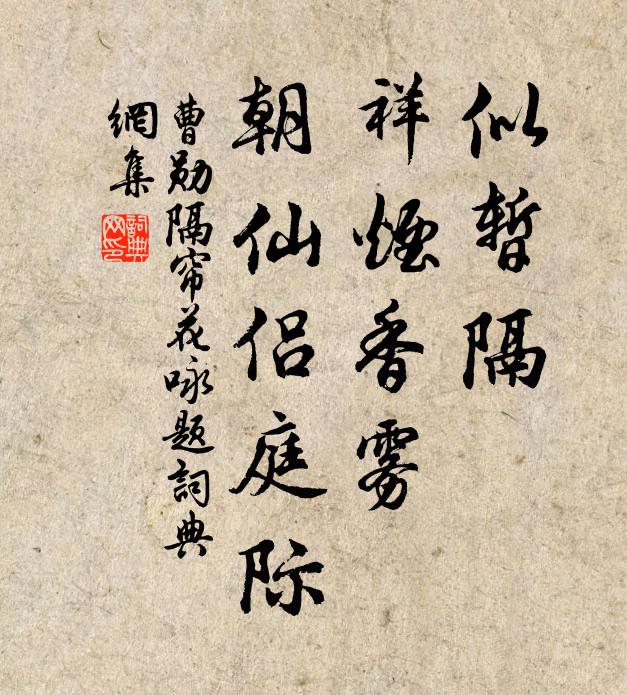 似暂隔
祥烟香雾
朝仙侣庭际
曹勋隔帘花咏题詞典
網集
詞典網印